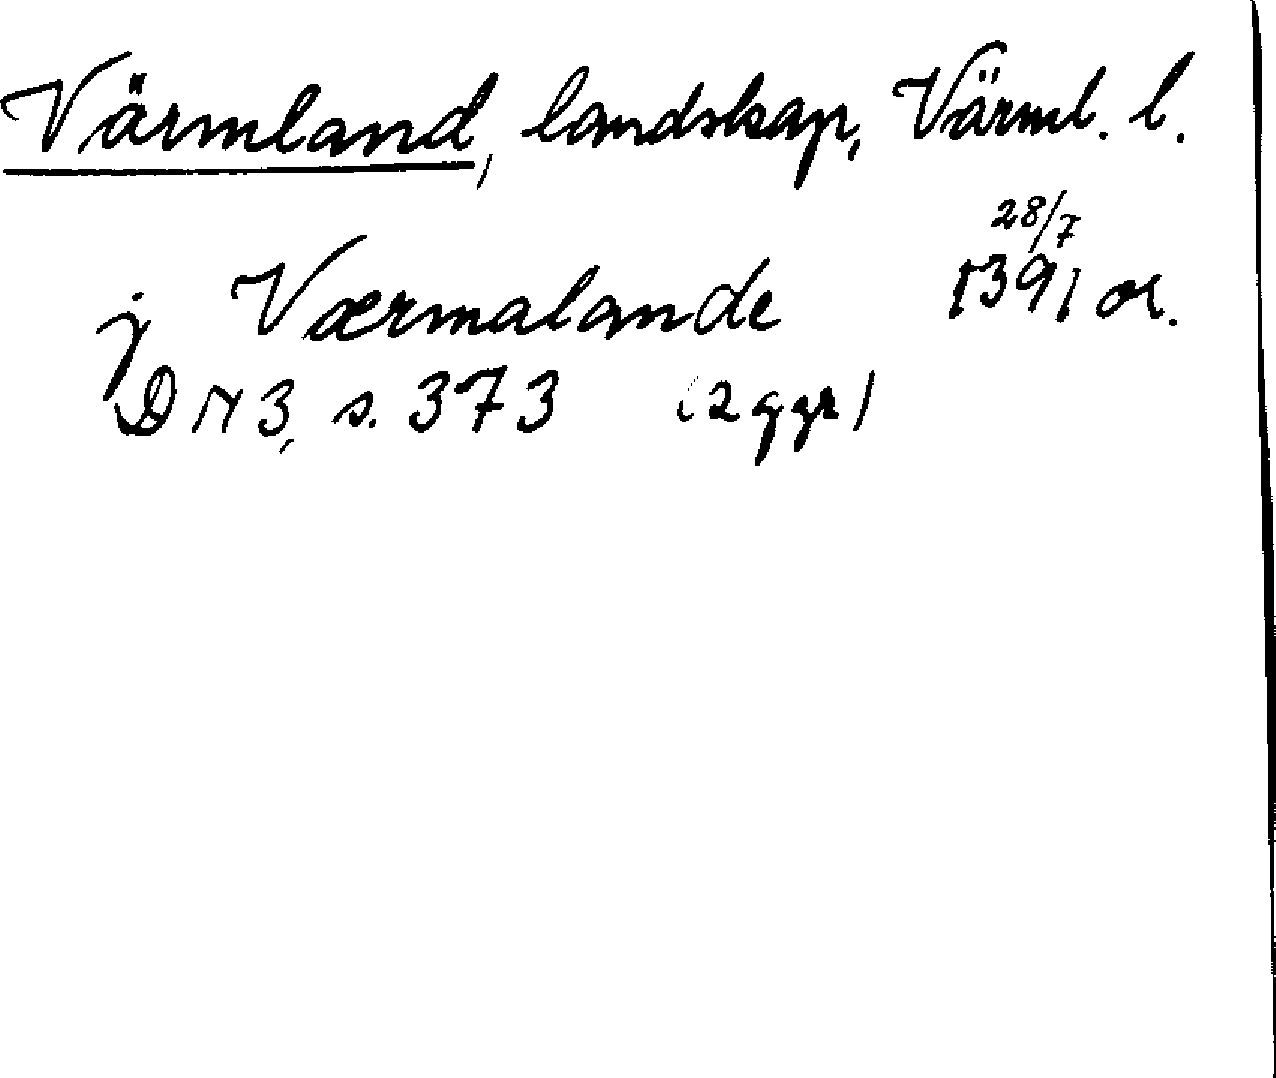 Värmland, landskap, Värml. l.
j Værmalande 28/7 1391 or.
DN 3, s. 373 (2 ggr)